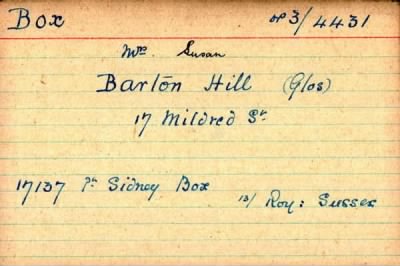 Box 3/4431
Mrs Susan
Barton Hill (Glos)
17 Mildred St
17137 Pte Sidney Box
13/ Roy: Sussex